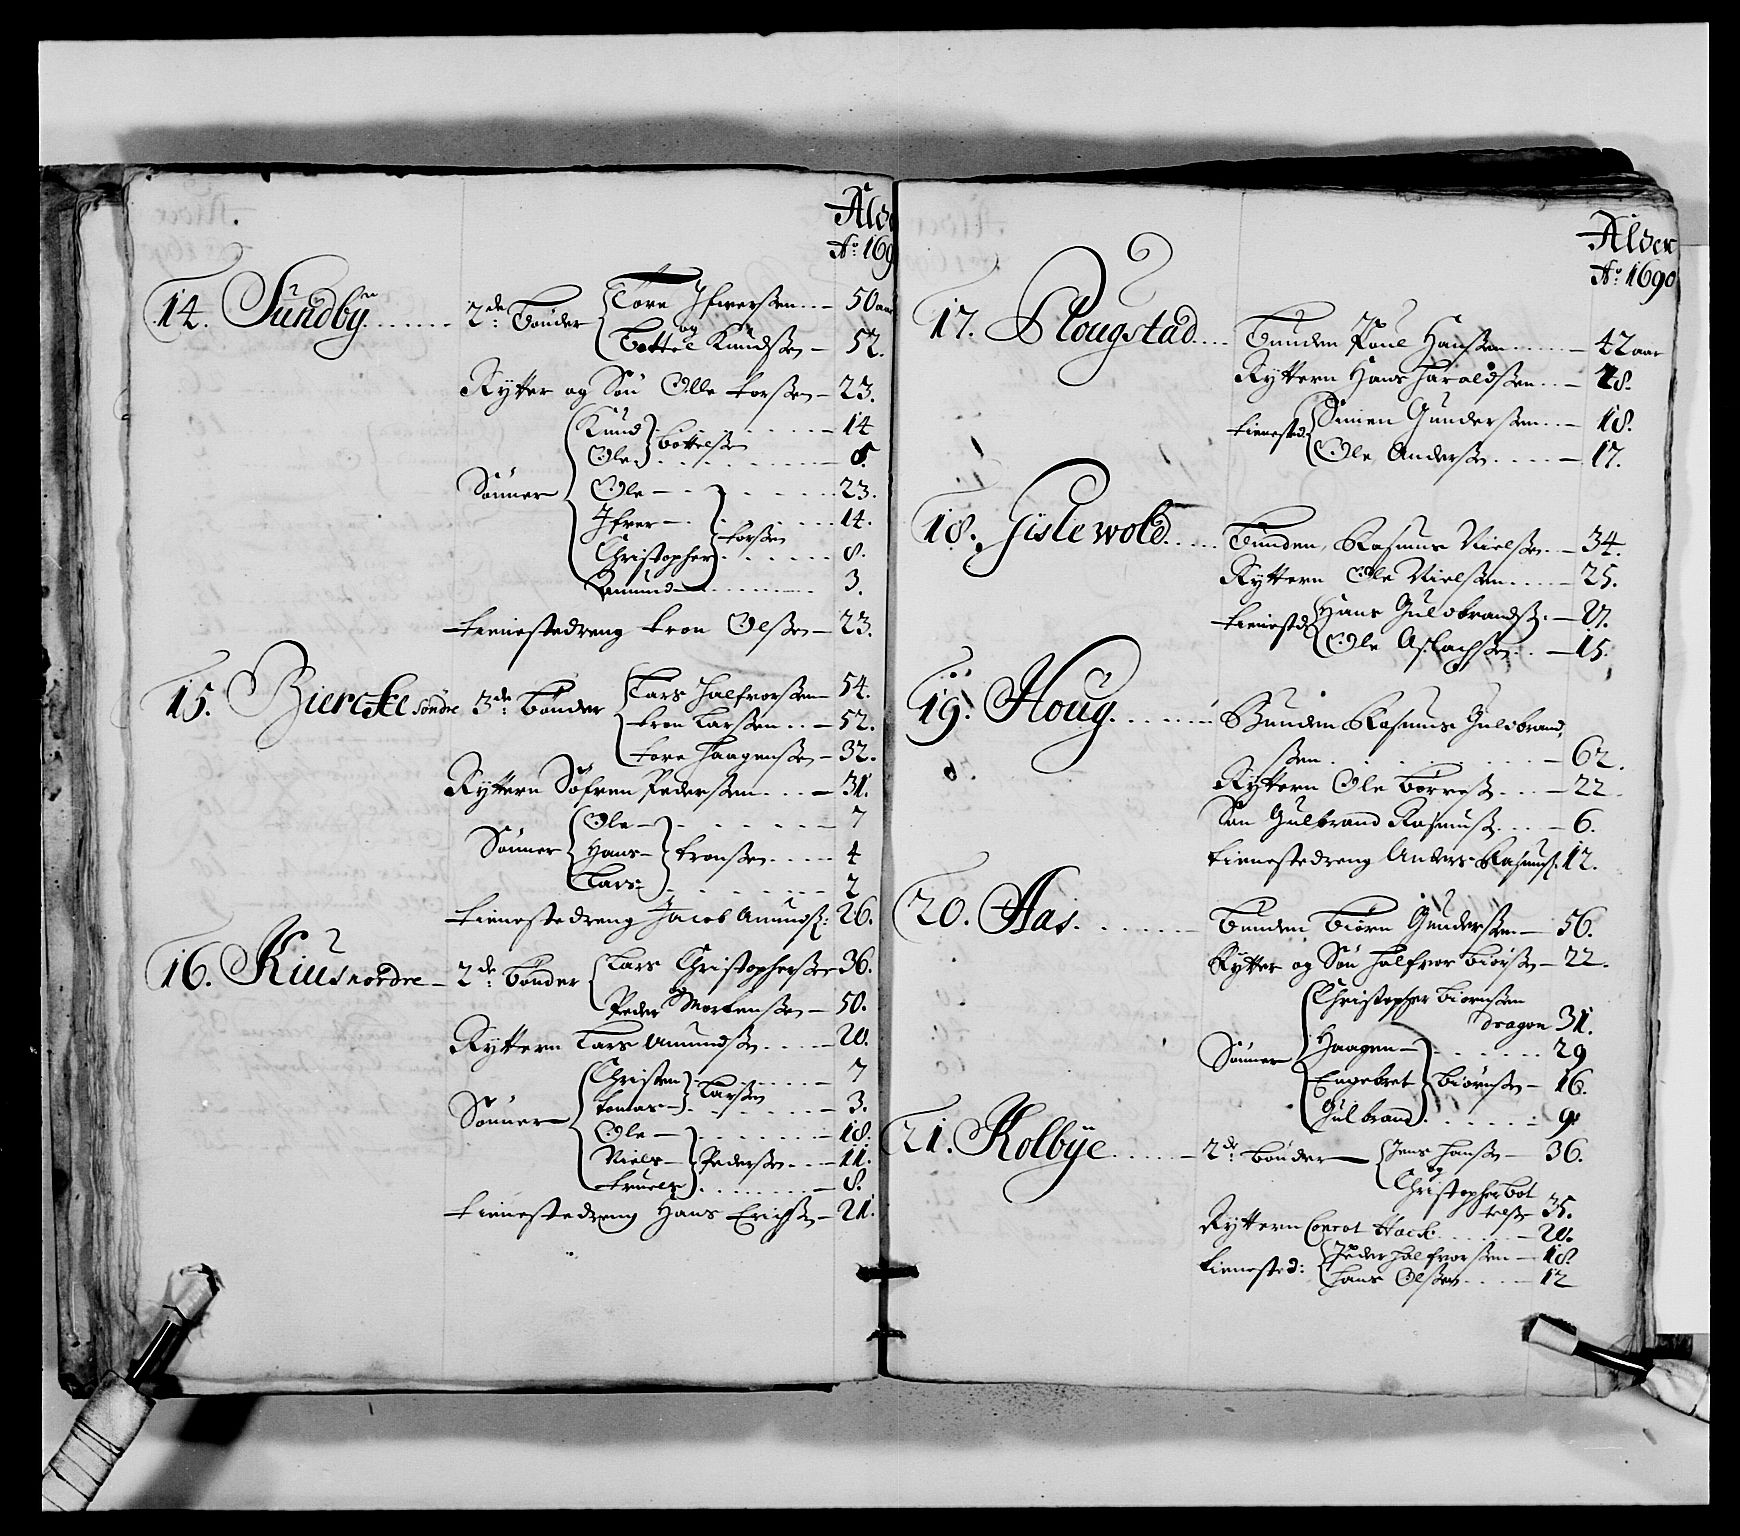 Alder
Ao: 169
14. Sundby 2de: Bønder Tore Ifwerssen 50 aar
og
Bottel Knudssen 52.
Rytter og Søn Olle torssen 23.
Knud 14
Ole bottelssen 8.
Sønner Ole 23.
Ifver 14.
Christopher torssen 8.
Amund 3.
tienestedreng tron Olssen 23.
15. Biercke søndre 3de: Bønder Lars Halfvorssen 54.
tron Larssen 52.
tore Haagenssen 32.
Rytteren Søfren Pederssen 31.
Ole 7
Sønner Hans tronssen 4
Lars 2
tienestedreng Jacob Amunds: 26.
16. Kius nordre 2de: bønder Lars Christopherssen 36.
og
Peder Mortenssen 50.
Rytteren Lars Amundssen 20.
Christen 7
tomas Larssen 3.
Sønner Ole 18.
Niels Pederssen 11.
truels 8.
tienestedreng Hans Erichssen 21.
Alder
Ao: 1690
17. Plougstad Bunden Poul Hanssen 42 aar
Rytteren Hans Haraldssen 28.
tienested: Simen Gunderssen 18.
Ole Anderssen 17.
18. Gislewold Bunden, Rasmus Nielssen 34.
Rytteren Ole Nielssen 25.
tienestd: Hans Guldbrandss: 17.
Ole Aslachssen 15.
19. Houg Bunden Rasmus Guldbrand,
ssen 62.
Rytteren Ole børress 22.
Søn Gulbrand Rasmuss 6.
tienestedreng Anders Rasmuss. 12.
20. Aas Bunden biørn Gunderssen 56.
Rytter og Søn Halfvor biørssen 22.
Christopher biørnssen
dragon 31.
Sønner Haagen 29
Engebret biørnssen 16.
Gulbrand 9
21. Kolbye 2de: bønder Jens Hanssen 36.
og
Christopher bot
telssen 35.
Rytteren Conrot Hack 20.
tienested: Peder Halfvorssen 18.
Hans Olssen 12